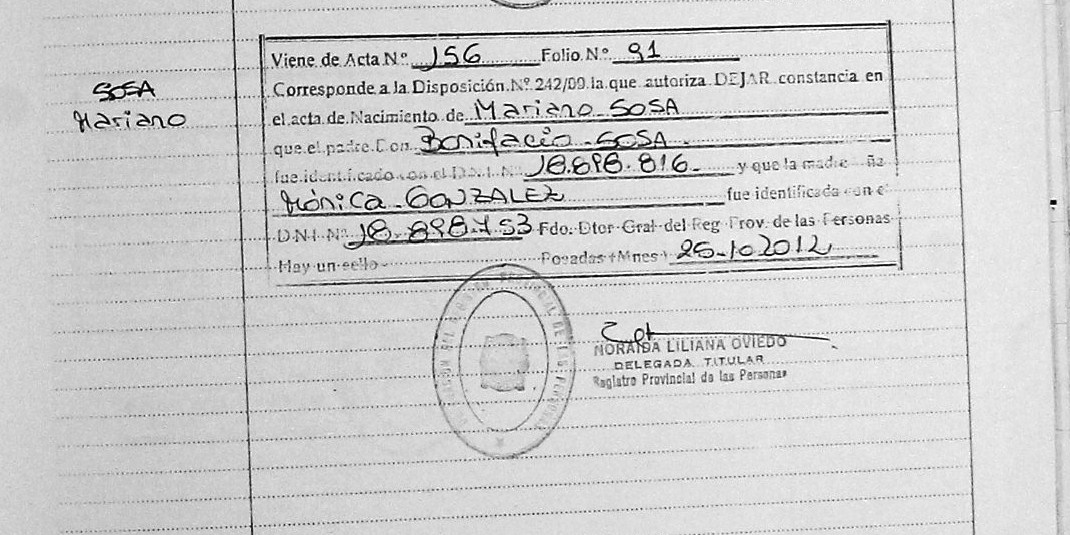 Viene de Acta N° 156 Folio N° 91
SOSA
Mariano
Corresponde a la Disposición Nº 242/09 la que autoriza DEJAR constancia en
el acta de Nacimiento de Mariano SOSA
que el padre Don Bonifacio SOSA
fue identificado con el D.N.I. N° 18.898.816 y que la madre ña
Mónica GONZALEZ fue identificada con e
D.N.I. Nº 18.898.753 Fdo. Dtor Gral del Reg Prov. de las Personas
Hay un sello Posadas (Mnes) 25-10-2012
NORAIDA LILIANA OVIEDO
DELEGADA TITULAR
Registro Provincial de las Personas